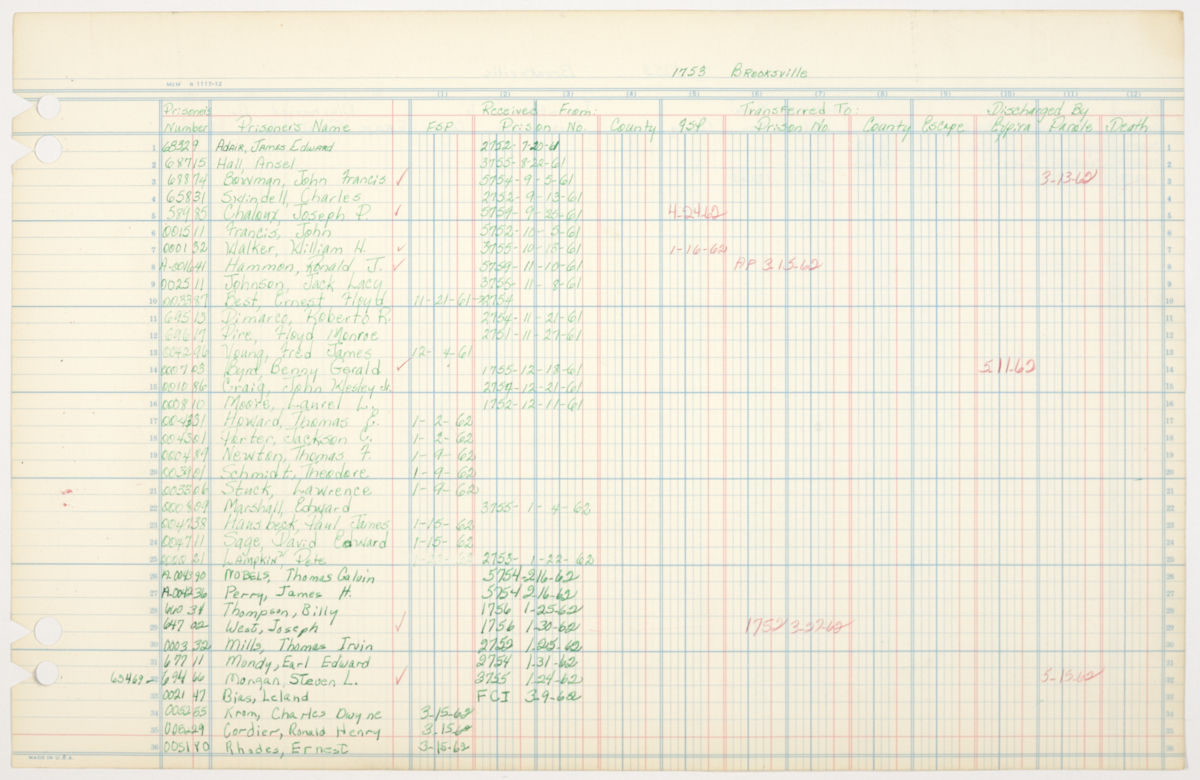 1753 Brooksville
MCM K 1117-12
(1) (2) (3) (4) (5) (6) (7) (8) (9) (10) (11) (12)
Prisoners Received From: Transferred To: Discharged By
Number Prisoner's Name FSP Prison No. County FSP Prison No. County Escape Expira Parole Death
1 68329 Adair, James Edward 2752- 7-20-61 1
2 68715 Hall, Ansel 3755-8-22-61 2
3 68874 Bowman, John Francis ✓ 5754-9-5-61 3-13-62 3
4 65831 Swindell, Charles 2752-9-13-61 4
5 58985 Chaloux, Joseph P. ✓ 5754-9-26-61 4-24-62 5
6 001511 Francis, John 5752-10-5-61 6
7 000132 Walker, William H. ✓ 3755-10-15-61 1-16-62 7
8 A-001641 Hammon, Ronald J. ✓ 5754-11-10-61 AP 3-15-62 8
9 002511 Johnson, Jack Lacy 3755-11-8-61 9
10 003387 Best, Ernest Floyd 11-21-61 2754 10
11 69513 Dimarco, Roberto R. 2754-11-21-61 11
12 Pire, Floyd Monroe 2751-11-27-61 12
13 Young, Fred James 12-4-61 13
14 000703 Byrd, Benny Gerald ✓ 1755-12-18-61 5-11-62 14
15 001086 Craig, John Wesley Jr. 2754-12-21-61 15
16 000810 Moore, Laurel L. 1752-12-11-61 16
17 004331 Howard, Thomas J. 1-2-62 17
18 004301 Porter, Jackson C. 1-2-62 18
19 000489 Newton, Thomas F. 1-9-62 19
20 003801 Schmidt, Theodore 1-9-62 20
21 003306 Stuck, Lawrence 1-9-62 21
22 000809 Marshall, Edward 3755-1-4-62 22
23 004738 Hausbeck, Paul James 1-15-62 23
24 004711 Sage, David Edward 1-15-62 24
25 Lampkin, Pete 2753-1-22-62 25
26 A-004390 Nobels, Thomas Calvin 5754-2-16-62 26
27 A-004236 Perry, James H. 5754 2-16-62 27
28 66031 Thompson, Billy 1756 1-25-62 28
29 64702 West, Joseph ✓ 1756 1-30-62 1752 3-27-62 29
30 000332 Mills, Thomas Irvin 2752 1-25-62 30
31 67711 Mondy, Earl Edward 2754 1-31-62 31
63469- 32 69466 Morgan, Steven L. ✓ 2755 1-24-62 5-15-62 32
33 002147 Bias, Leland FCI 3-9-62 33
34 005255 Krom, Charles Dwyne 3-15-62 34
35 005229 Cordier, Ronald Henry 3-15-62 35
36 005180 Rhodes, Ernest 3-15-62 36
MADE IN U.S.A.